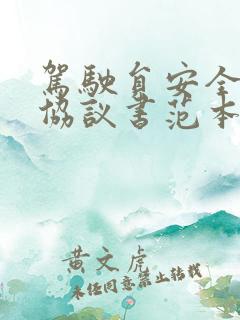 駕駛自安全
協議書范本
黄文虎
未经同意禁止转载